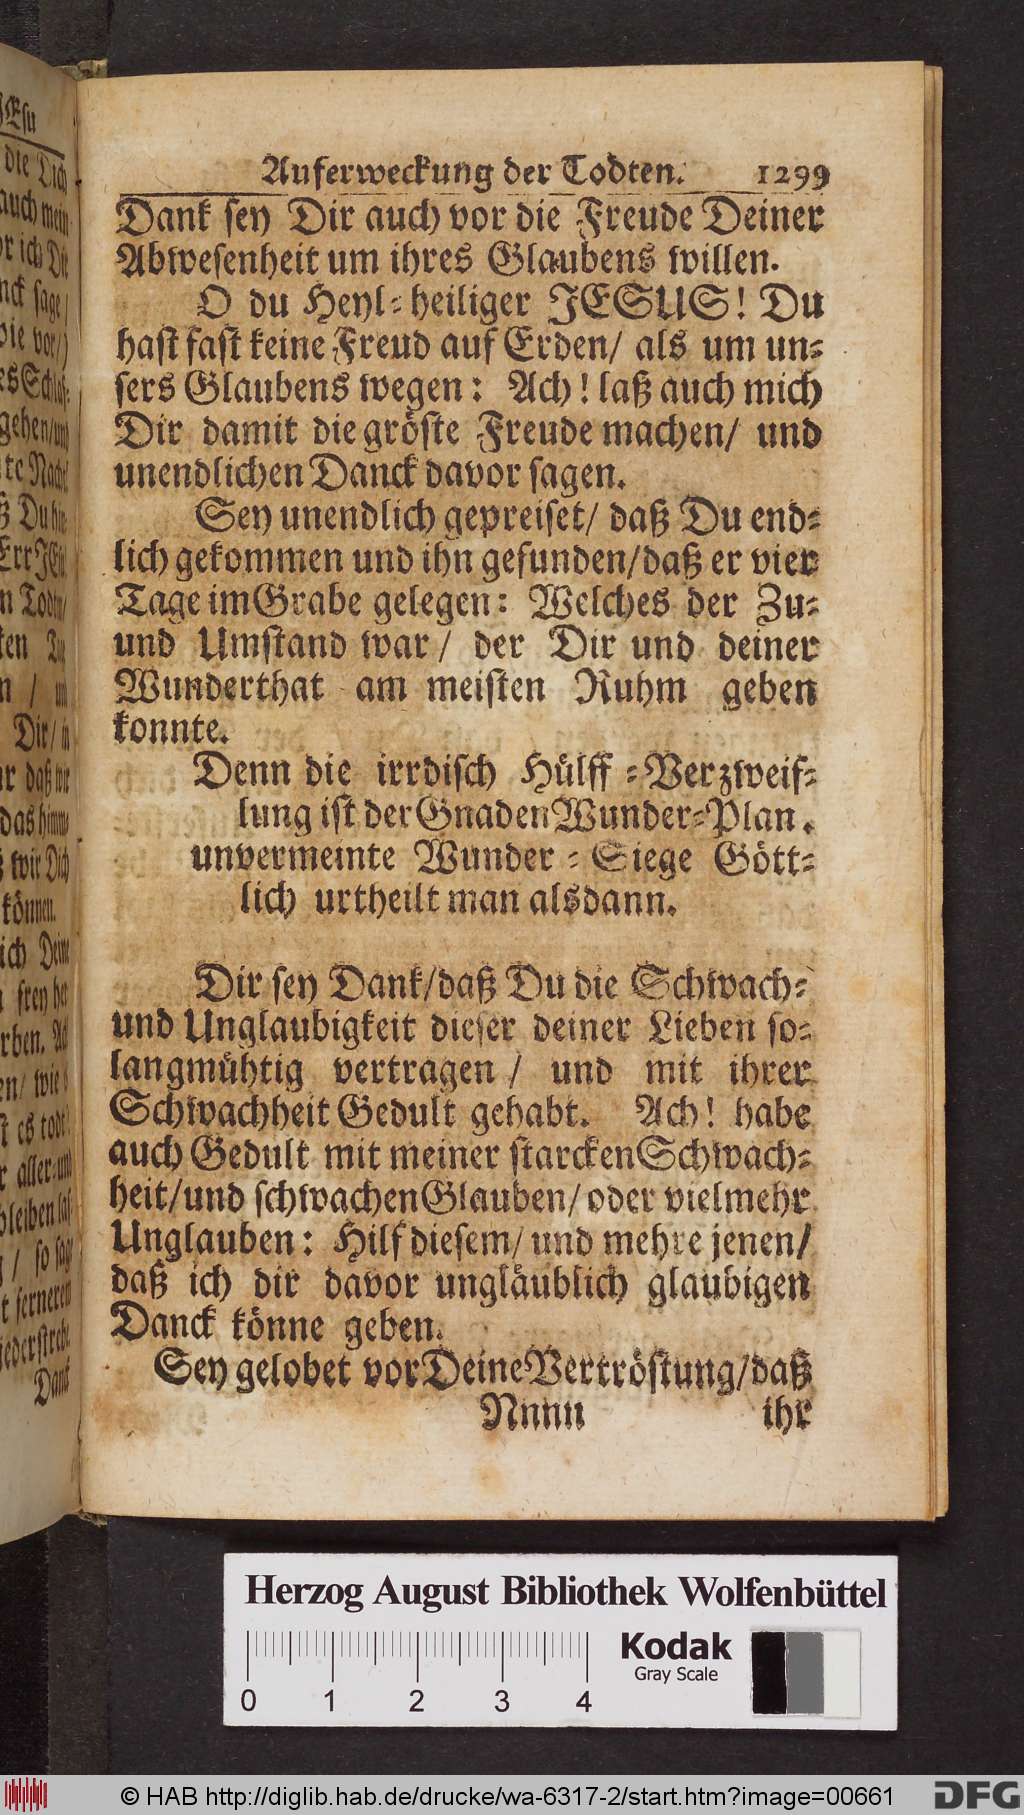 Auferweckung der Todten. 1299
Dank sey Dir auch vor die Freude Deiner
Abwesenheit um ihres Glaubens willen.
O du Heyl-heiliger JESUS! Du
hast fast keine Freud auf Erden/ als um un-
sers Glaubens wegen: Ach! laß auch mich
Dir damit die gröste Freude machen/ und
unendlichen Danck davor sagen.
Sey unendlich gepreiset/ daß Du end-
lich gekommen und ihn gefunden/daß er vier
Tage im Grabe gelegen: Welches der Zu-
und Umstand war/ der Dir und deiner
Wunderthat am meisten Ruhm geben
konnte.
Denn die irrdisch Hülff-Verzweif-
lung ist der Gnaden Wunder-Plan.
unvermeinte Wunder-Siege Gött-
lich urtheilt man alsdann.
Dir sey Dank/daß Du die Schwach-
und Unglaubigkeit dieser deiner Lieben so-
langmühtig vertragen/ und mit ihrer
Schwachheit Gedult gehabt. Ach! habe
auch Gedult mit meiner starcken Schwach-
heit/und schwachen Glauben/oder vielmehr
Unglauben: Hilf diesem/ und mehre jenen/
daß ich dir davor ungläublich glaubigen
Danck könne geben.
Sey gelobet vor Deine Vertröstung/daß
Nnnn ihr
JEsu
die Dich
auch mein
sage/
gehen/und
ß Du
Dir/ in
daß wir
ß wir Dich
können.
ich Deine
frey
rben.
wie
es todt
aller-und
bleiben
/ so sage
fernerem
Dank
Herzog August Bibliothek Wolfenbüttel
0 1 2 3 4
Kodak
Gray Scale
© HAB http://diglib.hab.de/drucke/wa-6317-2/start.htm?image=00661
DFG